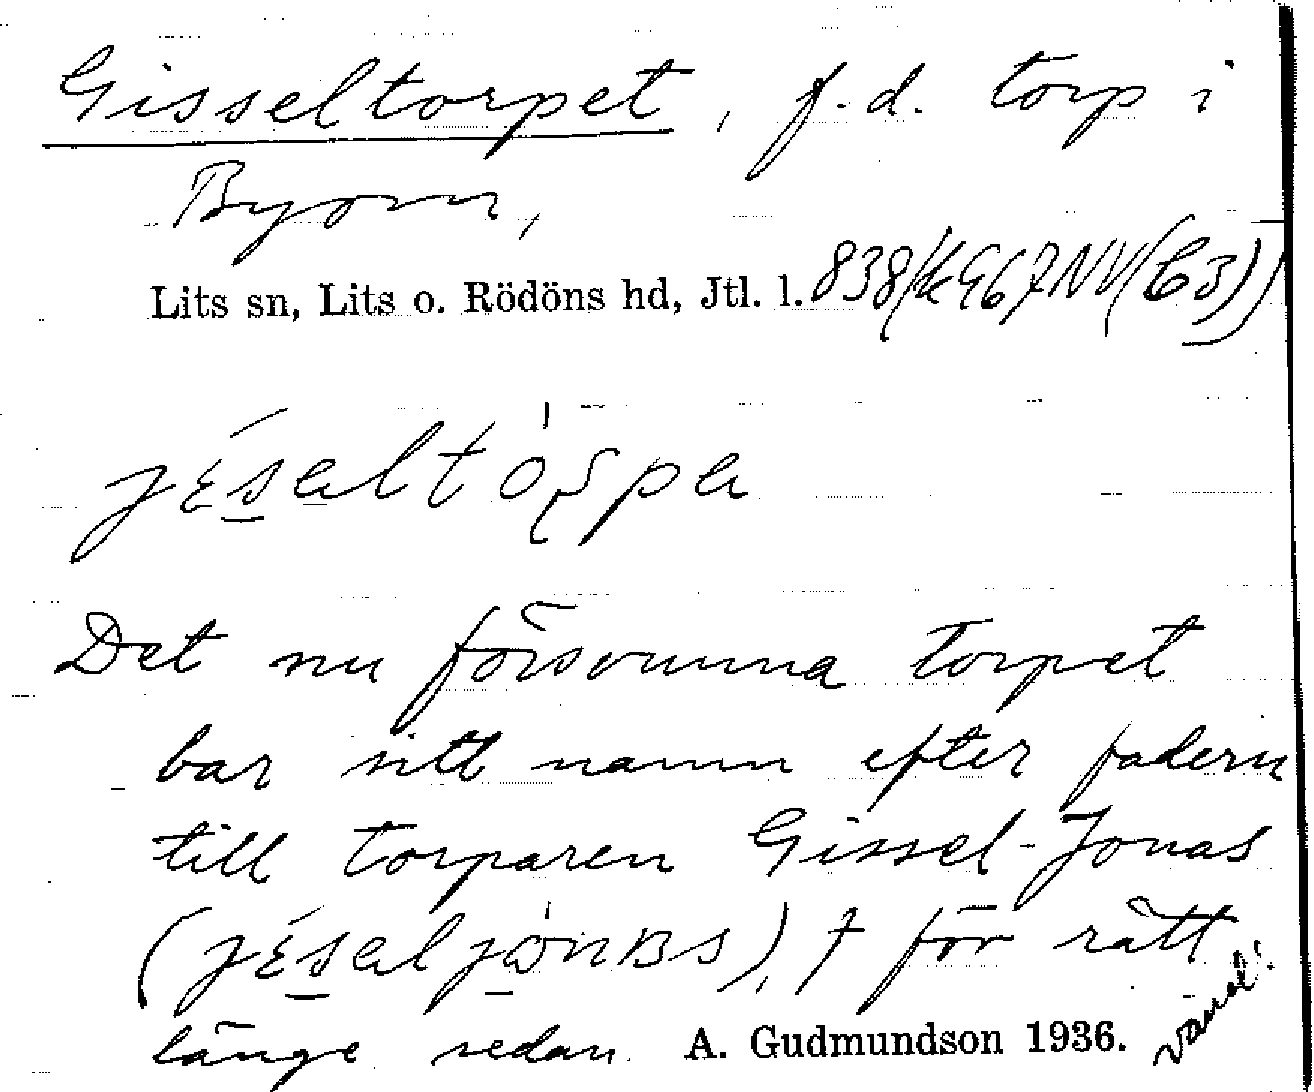 Gisseltorpet, f.d. torp i
Byom,
Lits sn, Lits o. Rödöns hd, Jtl. l. 838/k967NV(C3))
Det nu försvunna torpet
bar sitt namn efter fadern
till torparen Gissel-Jonas
† för rätt
länge sedan. A. Gudmundson 1936.